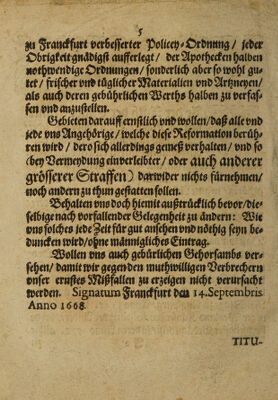 5
zu Franckfurt verbesserter Policey-Ordnung / jeder
Obrigkeit gnädigst aufferlegt / der Apothecken halben
nothwendige Ordnungen / sonderlich aber so wohl gu-
tet / frischer und tüglicher Materialien und Artzneyen /
als auch deren gebührlichen Werths halben zu verfas-
sen und anzustellen.
Gebieten darauff ernstlich und wollen / daß alle und
jede vns Angehörige / welche diese Reformation berüh-
ren wird / dero sich allerdings gemeß verhalten / und so
(bey Vermeydung einverleibter / oder auch anderer
grösserer Straffen) darwider nichts fürnehmen /
noch andern zu thun gestatten sollen.
Behalten vns doch hiemit außtrücklich bevor / die-
selbige nach vorfallender Gelegenheit zu ändern: Wie
vns solches jede Zeit für gut ansehen und nöthig seyn be-
duncken wird / ohne männigliches Eintrag.
Wollen vns auch gebürlichen Gehorsambs ver-
sehen / damit wir gegen den muthwilligen Verbrechern
vnser ernstes Mißfallen zu erzeigen nicht verursacht
werden. Signatum Franckfurt den 14. Septembris
Anno 1668.
TITU-